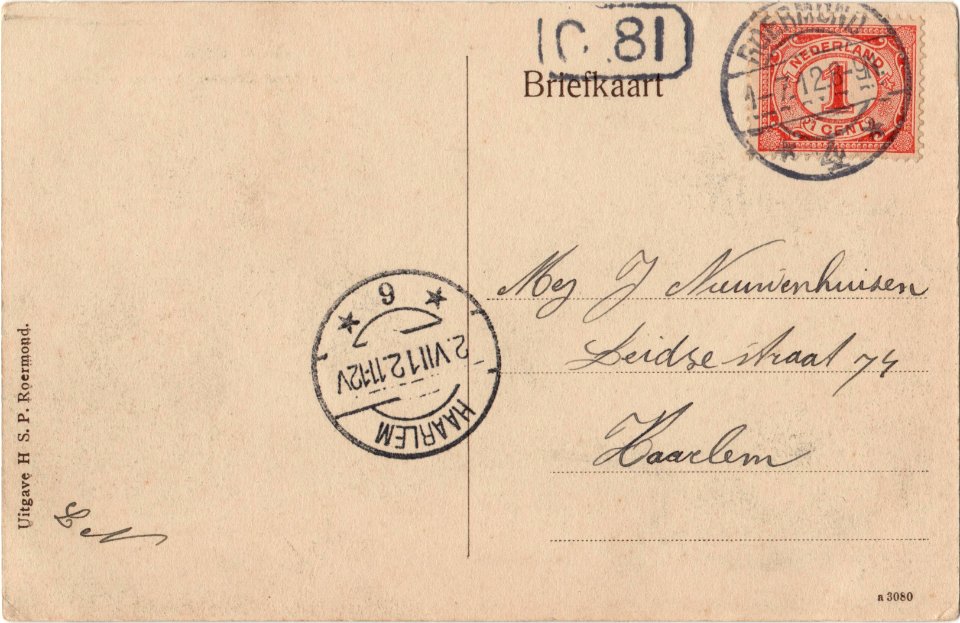 C. 81
Briefkaart
ROERMOND
NEDERLAND.
1
1 CENT
Mej J Nieuwenhuisen
Leidse straat 74
Haarlem
6
2.VII 12.11-12V
HAARLEM
Uitgave H S. P. Roermond.
L N
n 3080